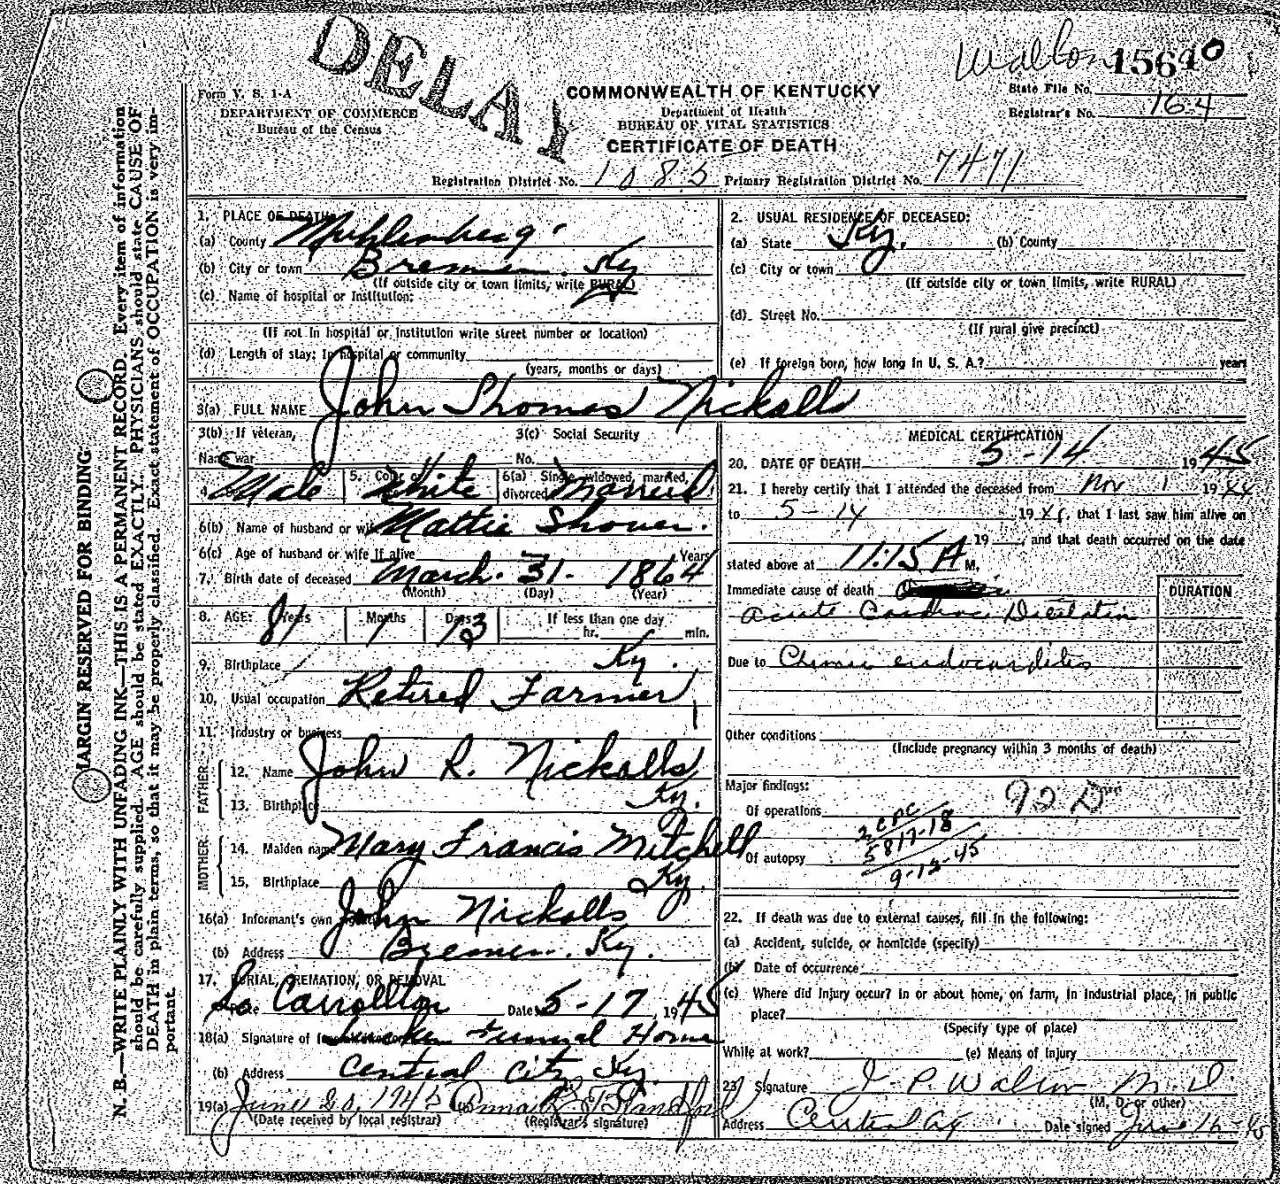 DELAY
Walton 15640
Form V. S. 1-A
COMMONWEALTH OF KENTUCKY
State File No.
DEPARTMENT OF COMMERCE
Department of Health
Registrar's No. 164
Bureau of the Census
BUREAU OF VITAL STATISTICS
CERTIFICATE OF DEATH
Registration District No. 1085 Primary Registration District No. 7471
1. PLACE OF DEATH
(a) County Muhlenberg
(b) City or town Bremen. Ky
(If outside city or town limits, write RURAL)
(c) Name of hospital or Institution:
(If not in hospital or institution write street number or location)
(d) Length of stay: In hospital or community
(years, months or days)
2. USUAL RESIDENCE OF DECEASED:
(a) State Ky. (b) County
(c) City or town
(If outside city or town limits, write RURAL)
(d) Street No.
(If rural give precinct)
(e) If foreign born, how long in U. S. A.? years
3(a) FULL NAME John Thomas Nickolls
3(b) If veteran, 3(c) Social Security
Name war No.
4. Male 5. White 6(a) Single, widowed, married, divorced Married
6(b) Name of husband or wife Mattie Shover.
6(c) Age of husband or wife if alive Years
7. Birth date of deceased March. 31. 1864
(Month) (Day) (Year)
8. AGE: Years 81 Months 1 Days 13 If less than one day
hr. min.
9. Birthplace Ky.
10. Usual occupation Retired Farmer
11. Industry or business
FATHER
12. Name John R. Nickolls
13. Birthplace Ky.
MOTHER
14. Maiden name Mary Francis Mitchell
15. Birthplace Ky.
16(a) Informant's own John Nickolls
(b) Address Bremen. Ky.
17. BURIAL, CREMATION, OR REMOVAL
So Carrollton Date 5-17, 1945
18(a) Signature of Funeral Home
(b) Address Central City Ky.
19(a) June 20, 1945 (b) Anna
(Date received by local registrar) (Registrar's signature)
MEDICAL CERTIFICATION
20. DATE OF DEATH 5-14 1945
21. I hereby certify that I attended the deceased from Nov 1 1944
to 5-14 1945, that I last saw him alive on
19, and that death occurred on the date
stated above at 11:15 A M.
Immediate cause of death DURATION
acute Cardiac Dilelation
Due to Chronic endocarditis
Other conditions
(Include pregnancy within 3 months of death)
Major findings:
Of operations 92 D
5817-18
Of autopsy
9-12-45
22. If death was due to external causes, fill in the following:
(a) Accident, suicide, or homicide (specify)
(b) Date of occurrence
(c) Where did injury occur? In or about home, on farm, in industrial place, in public
place?
(Specify type of place)
While at work? (e) Means of Injury
23. Signature J. P. Walton M.D
(M. D. or other)
Address Central City Date signed June 16-45
MARGIN RESERVED FOR BINDING
N. B.—WRITE PLAINLY WITH UNFADING INK—THIS IS A PERMANENT RECORD. Every item of information
should be carefully supplied. AGE should be stated EXACTLY. PHYSICIANS should state CAUSE OF
DEATH in plain terms, so that it may be properly classified. Exact statement of OCCUPATION is very im-
portant.